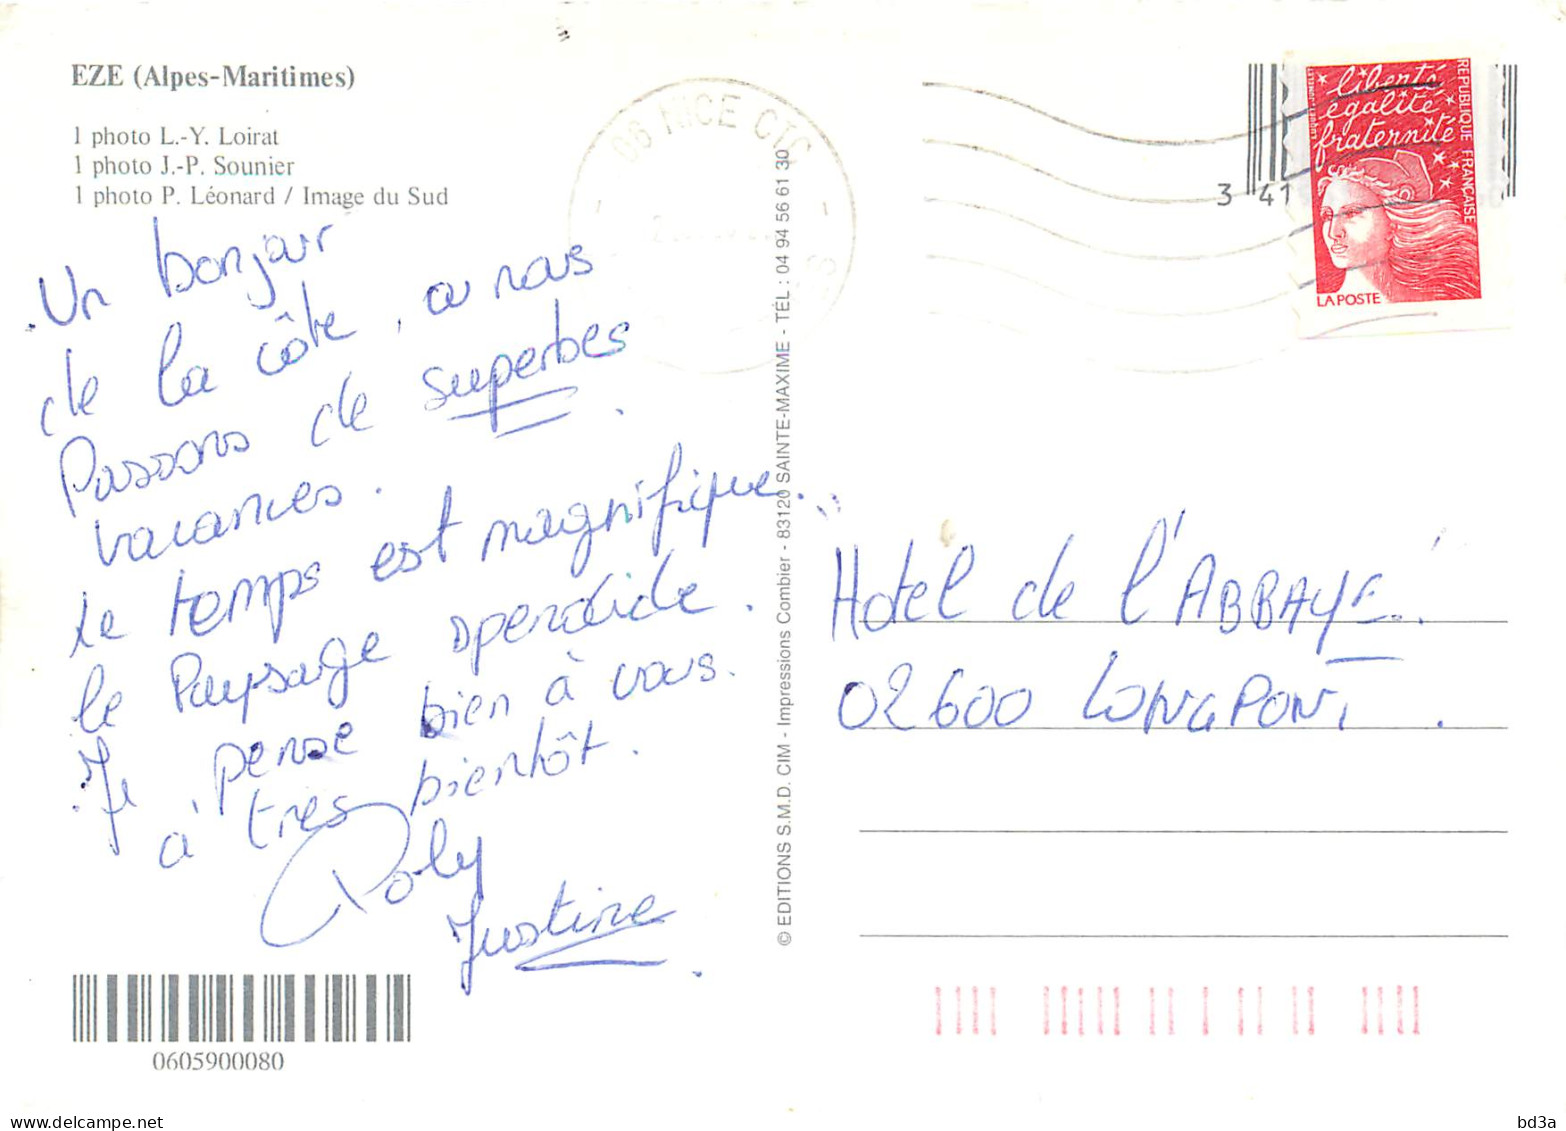 EZE (Alpes-Maritimes)
1 photo L.-Y. Loirat
1 photo J.-P. Sounier
1 photo P. Léonard / Image du Sud
Un bonjour
de la côte, ou nous
Passons de superbes
vacances.
Le temps est magnifique...
le Paysage splendide.
Je pense bien à vous.
à très bientôt.
Poly
Justine
0605900080
© EDITIONS S.M.D. CIM - Impressions Combier - 83120 SAINTE-MAXIME - TÉL : 04 94 56 61 30
06 NICE CTC
3 41
liberté
égalité
fraternité
REPUBLIQUE FRANÇAISE
LA POSTE
Hotel de l'ABBAYE
02600 LONGPONT.
delcampe.net
bd3a